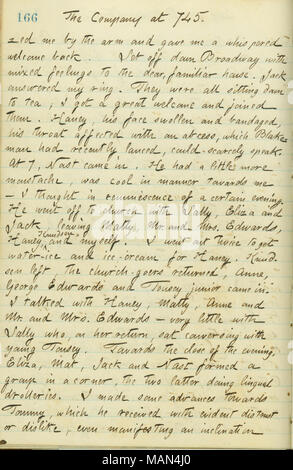 166
The Company at 745.
zed me by the arm and gave me a whispered
welcome back. Set off down Broadway with
mixed feelings to the dear, familiar house. Jack
answered my ring. They were all sitting down
to tea; I got a great welcome and joined
them. Haney, his face swollen and bandaged,
his throat affected with an abcess, which Blake-
man had recently lanced, could scarcely speak.
At 7, Nast came in. He had a little more
moustache, was cool in manner towards me
— I thought in reminiscence of a certain evening.
He went off to church with Sally, Eliza and
Jack, leaving Matty, Mr. and Mrs. Edwards,
Haney, Knudsen and myself. I went out twice to get
water-ice and ice-cream for Haney. Knud-
sen left, the church-goers returned, Anne,
George Edwards and Tousey junior came in.
I talked with Haney, Matty, Anne and
Mr. and Mrs. Edwards — very little with
Sally who, on her return, sat conversing with
young Tousey. Towards the close of the evening,
Eliza, Mat, Jack and Nast formed a
group in a corner, the two latter doing lingual
drolleries. I made some advances towards
Tommy, which he received with evident distrust
or dislike, even manifesting an inclination
alamy
Image ID: MAN4J0
www.alamy.com